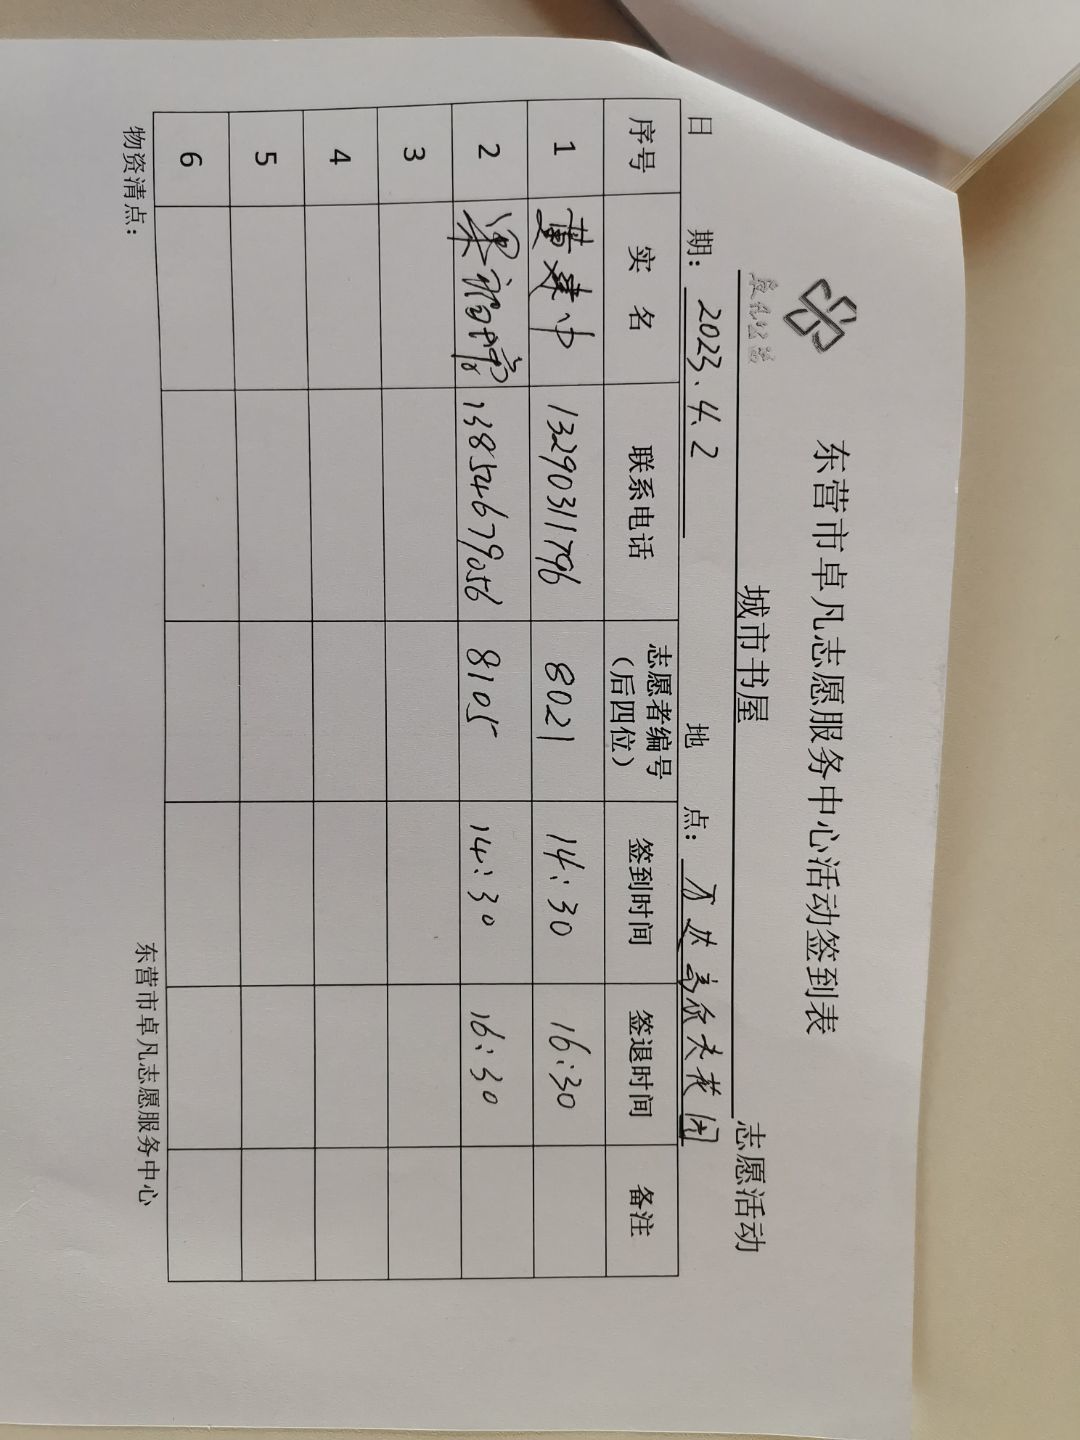 东营市卓凡志愿服务中心活动签到表
卓凡公益
城市书屋 志愿活动
日 期：2023.4.2 地 点：
序号 实 名 联系电话 志愿者编号（后四位） 签到时间 签退时间 备注
1 黄建中 13290311796 8021 14:30 16:30
2 梁 13854679056 8105 14:30 16:30
3
4
5
6
物资清点： 东营市卓凡志愿服务中心